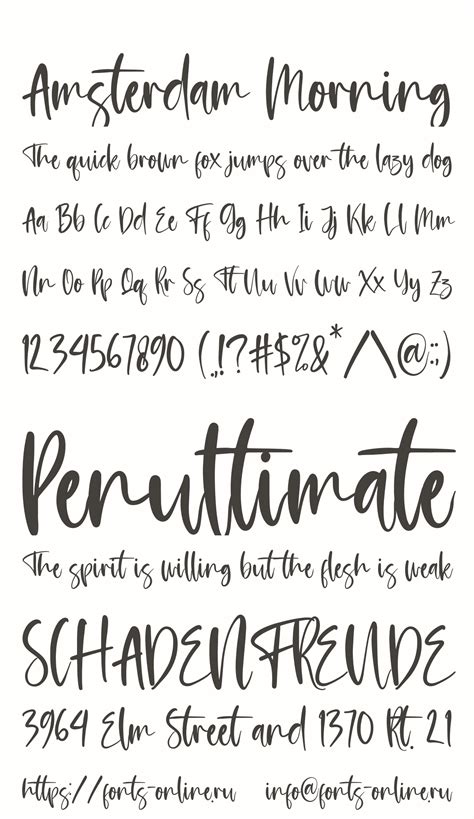 Amsterdam Morning
The quick brown fox jumps over the lazy dog
Aa Bb Cc Dd Ee Ff Gg Hh Ii Jj Kk Ll Mm
Nn Oo Pp Qq Rr Ss Tt Uu Vv Ww Xx Yy Zz
1234567890 (.,!?#$%&*/\@:;)
Penultimate
The spirit is willing but the flesh is weak
SCHADENFREUDE
3964 Elm Street and 1370 Rt. 21
https://fonts-online.ru info@fonts-online.ru